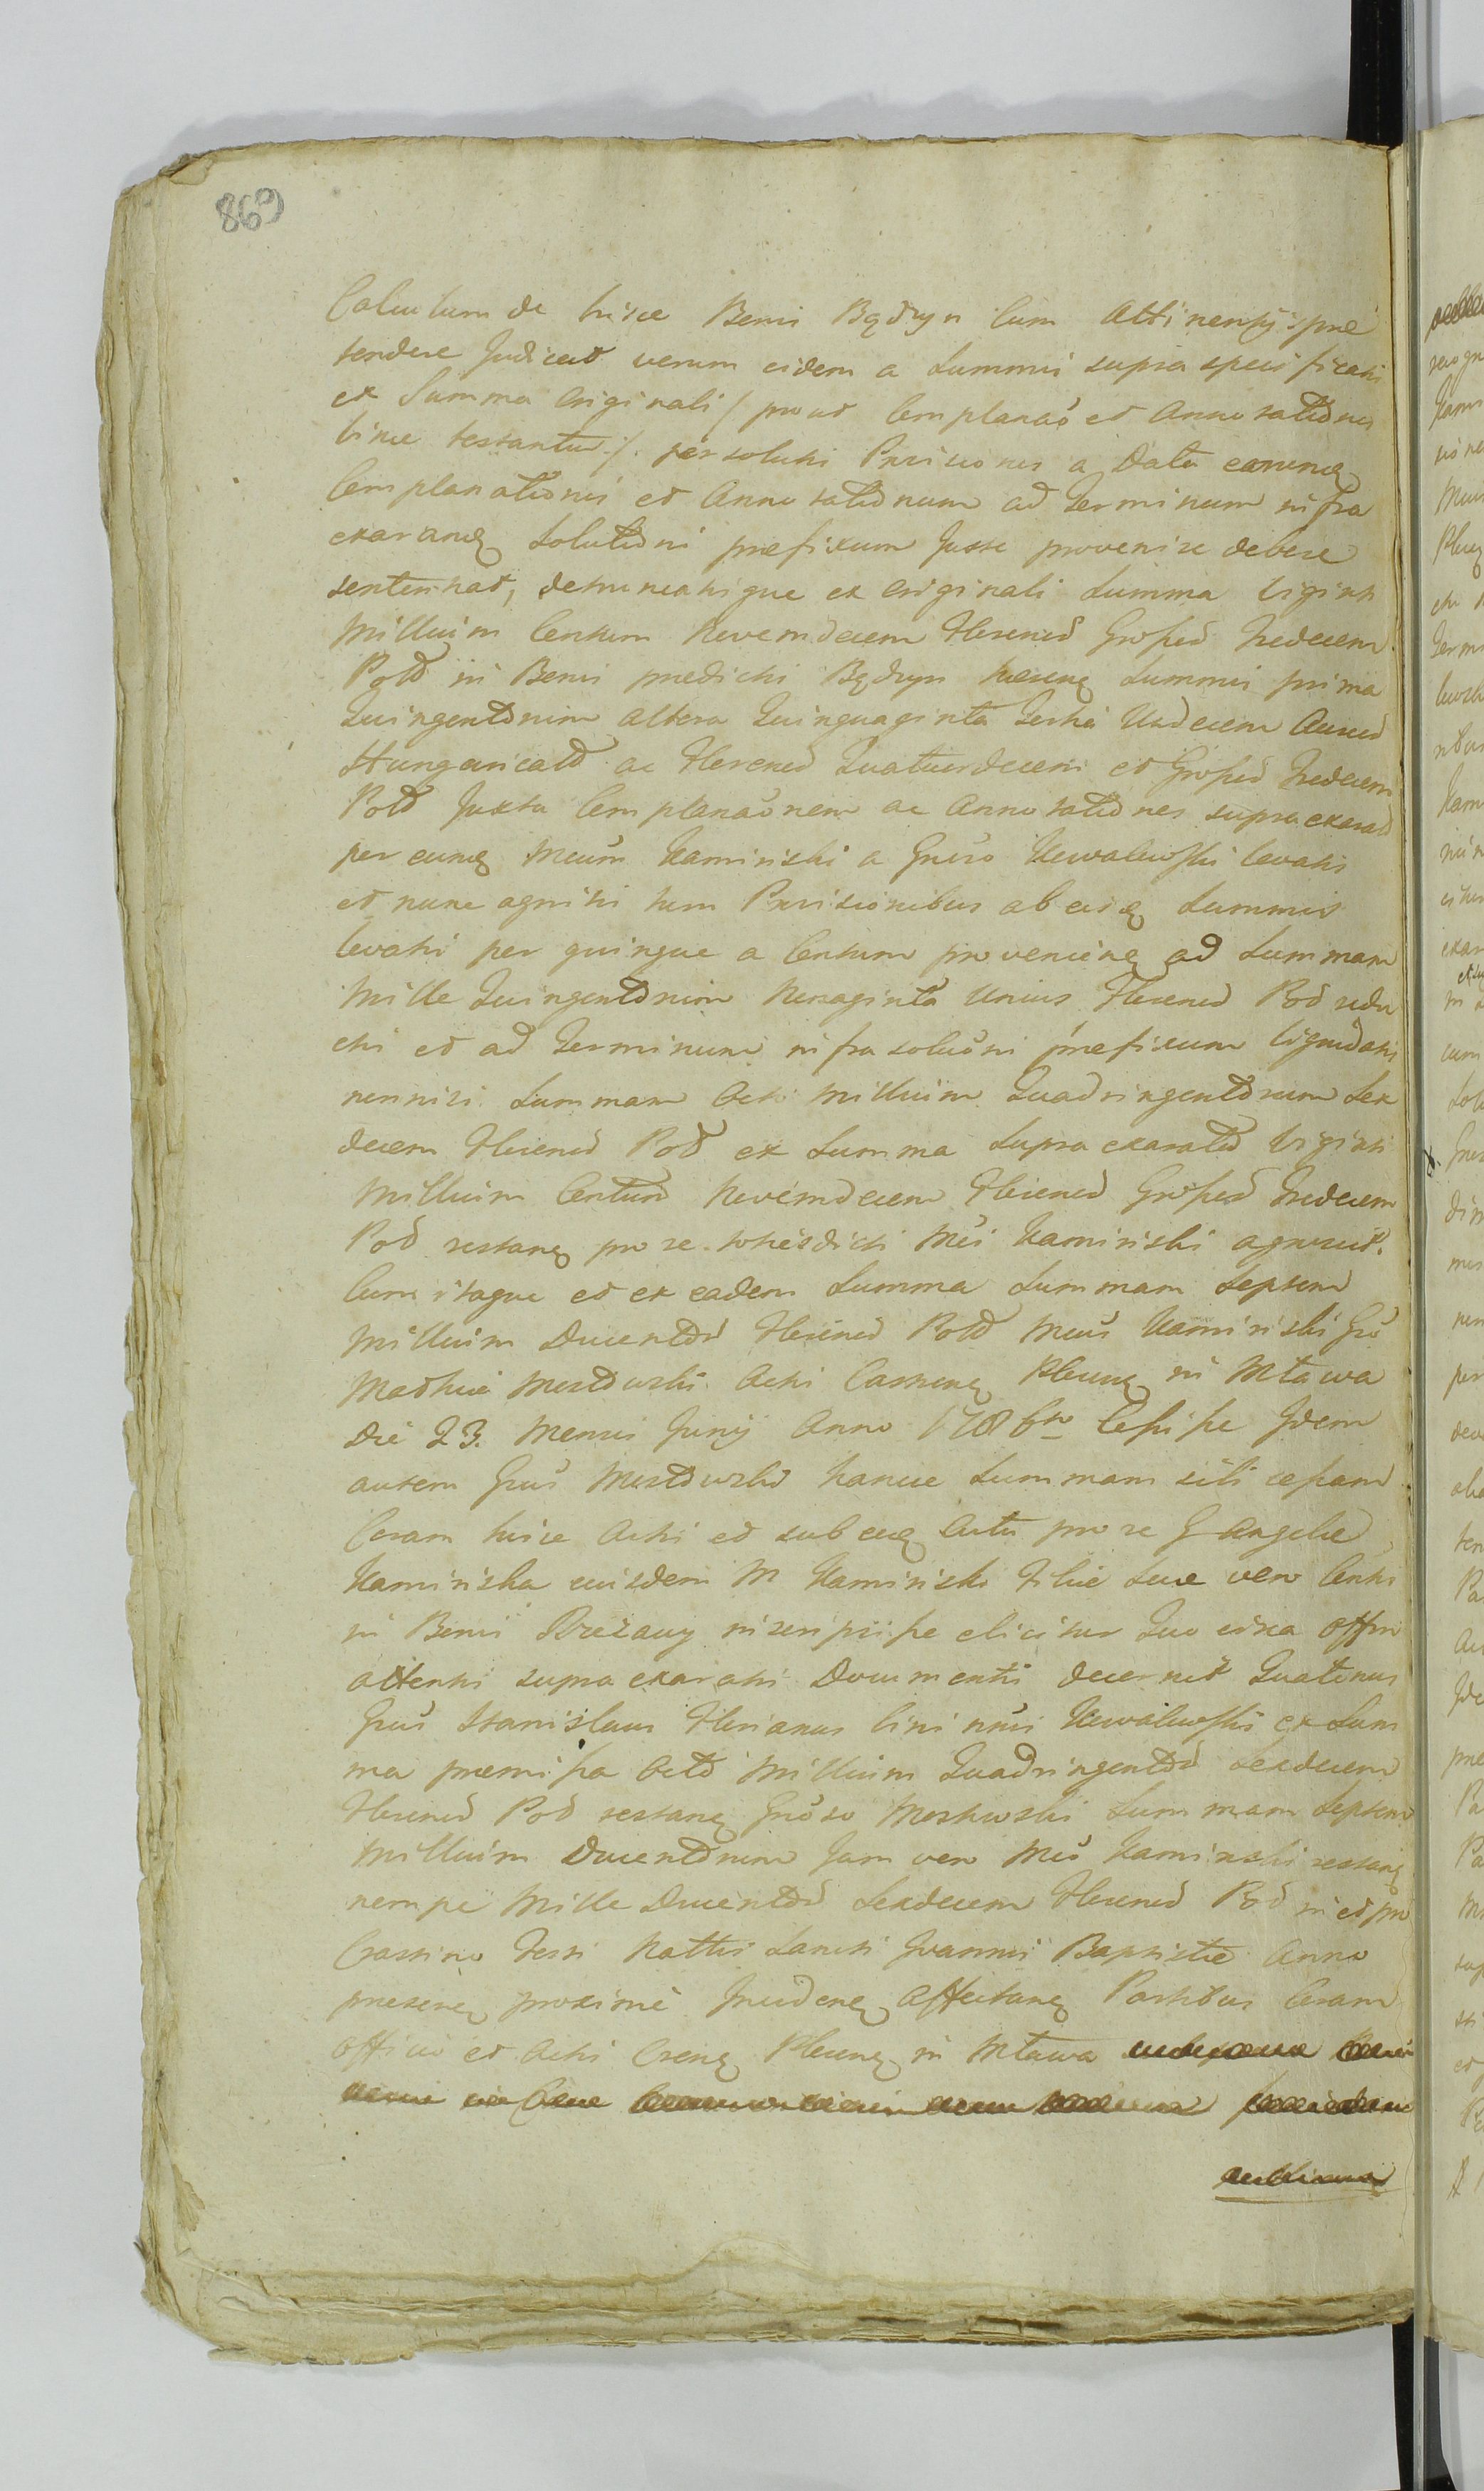 869
Calculum de hisce Bonis Bądzyn Cum Attinentijs præ
tendere Judicat verum eidem a Summis supra specificatis
et Summa Originali /: prout Complanatio et Annotationes
testantur :/ persolutis Provisiones a Data earunq
Complanationis et Annotationum ad Terminum infra
exaranq Solutioni præfixum Juste provenire debere
sentenciat, detruncatisque ex Originali Summa Viginti
Millium Centum Novemdecem Florenor Grossor Tredecem
Pold in Bonis prædictis Bądzyn Summis prima
Quingentorum altera Quinquaginta Tertia Undecem Aureor
Hungaricald ac Florenor Quatuordecem et Grossor Tredecem
Pold Juxta Complanaonem ac Annotationes supra exarat
per eunq Mcum Kaminski a Gnoso Kowalewski levatis
et nunc agnitis tum Provisionibus ab eisq Summis
levatis per quinque a Centum provenienq ad Summam
Mille Quingentorum Nonaginta Unius Florenor Pold redu
ctis et ad Terminum infra soluoni præfixum liquidatis
nonnisi Summam Octo Millium Quadringentorum Sex
decem Florenor Pold ex Summa Supra exarata Viginti
Millium Centum Novemdecem Florenor Grossor Tredecem
Pold restanq pro re totiesdicti Mci Kaminski agnoscit.
Cum itaque et ex eadem Summa Summam Septem
Millium Ducentor Florenor Pold Mcus Kaminski Gso
Mathiæ Mostowski Actis Castrenq Plocenq in Mlawa
Die 23. Mensis Junij Anno 1786to Cessisse Idem
autem Gsus Mostowski hancce Summam sibi cessam
Coram hisce Actis et sub eisq Actu pro re G Angelæ
Kaminska eiusdem M Kaminski Filiæ Suæ vero Conti
in Bonis inscripsisse elicitur Quo circa Offm
attentis supra exaratis Documentis decernit Quatenus
Gsus Stanislaus Florianus bini nois Kowalewski ex Sum
ma præmissa Octo Millium Quadringentor Sexdecem
Florenor Pold restanq Gnoso Mostowski Summam Septem
Millium Ducentorum Jam vero Mco Kaminski restanq
nempe Mille Ducentor Sexdecem Florenor Pold in et pro
Crastino Festi Nattis Sancti Joannis Baptistæ Anno
præsenq proxime Incidenq Affectanq Partibus Coram
Officio et Actis Crenq Plocenq in Mlawa